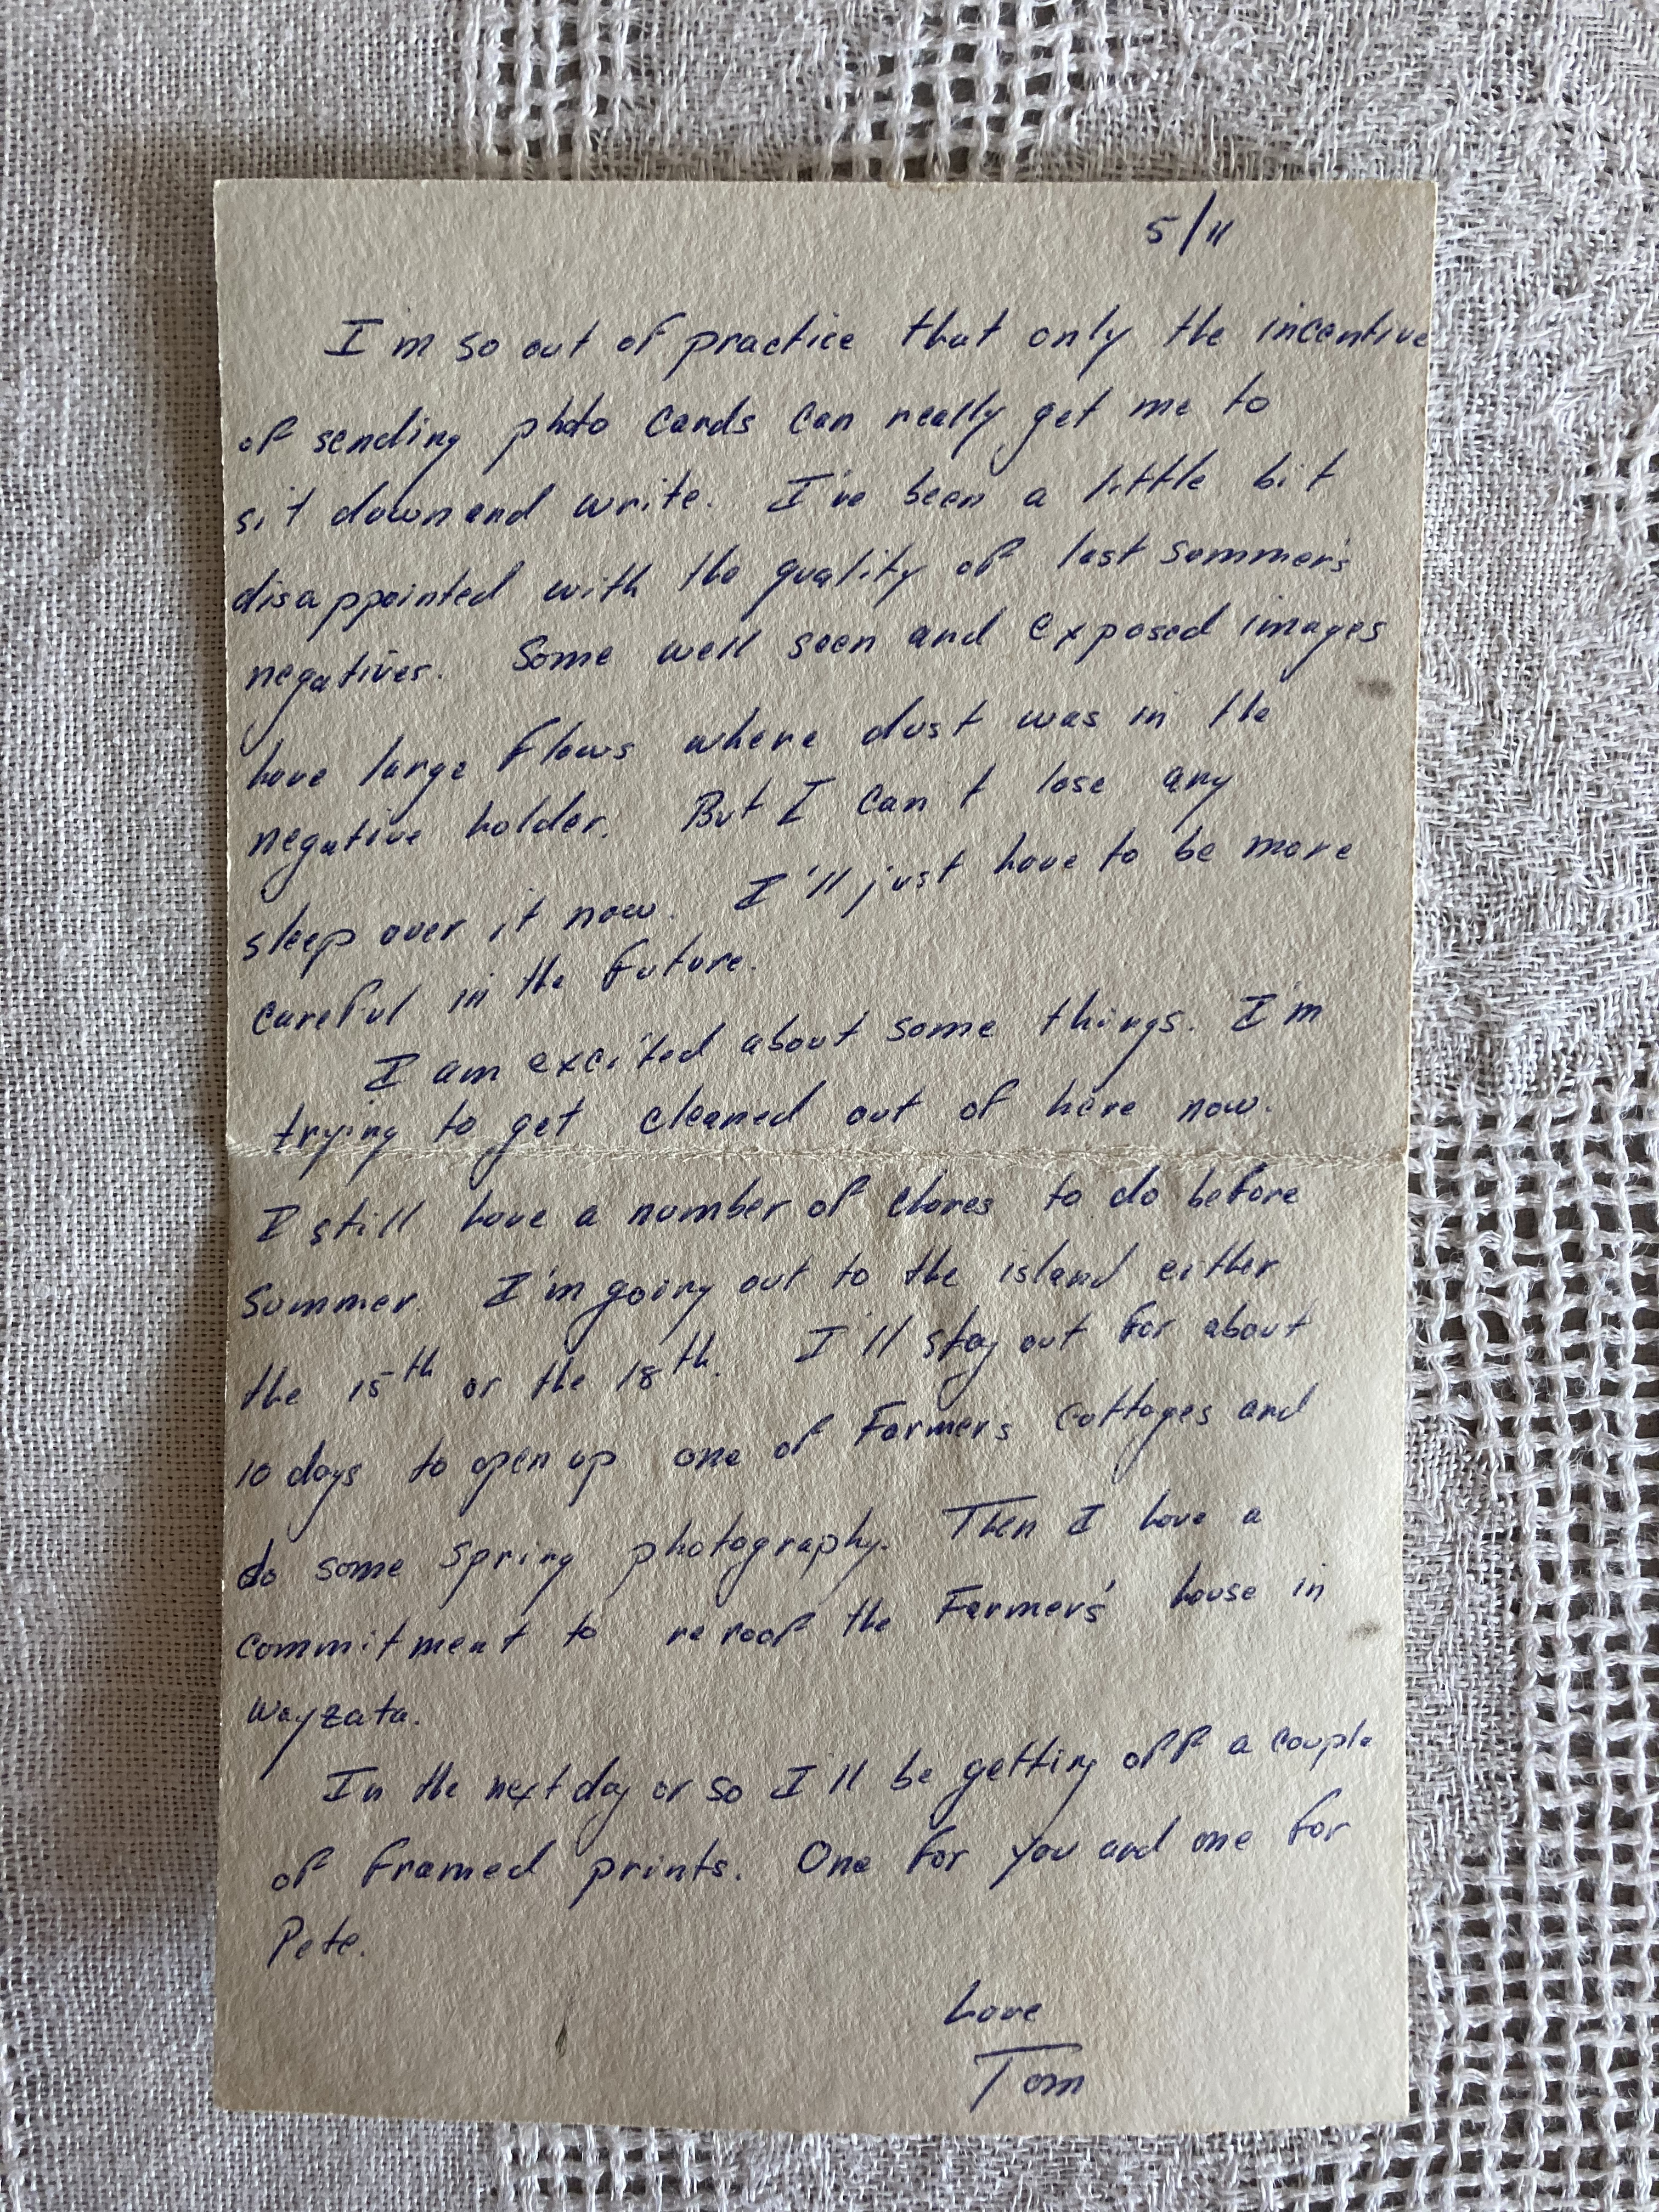 5/11
I'm so out of practice that only the incentive
of sending photo cards can really get me to
sit down and write. I've been a little bit
disappointed with the quality of last summer's
negatives. Some well seen and exposed images
have large flaws where dust was in the
negative holder. But I can't lose any
sleep over it now. I'll just have to be more
careful in the future.
I am excited about some things. I'm
trying to get cleaned out of here now.
I still have a number of chores to do before
summer. I'm going out to the island either
the 15th or the 18th. I'll stay out for about
10 days to open up one of Farmers cottages and
do some spring photography. Then I have a
commitment to reroof the Farmers' house in
Wayzata.
In the next day or so I'll be getting off a couple
of framed prints. One for you and one for
Pete.
Love
Tom